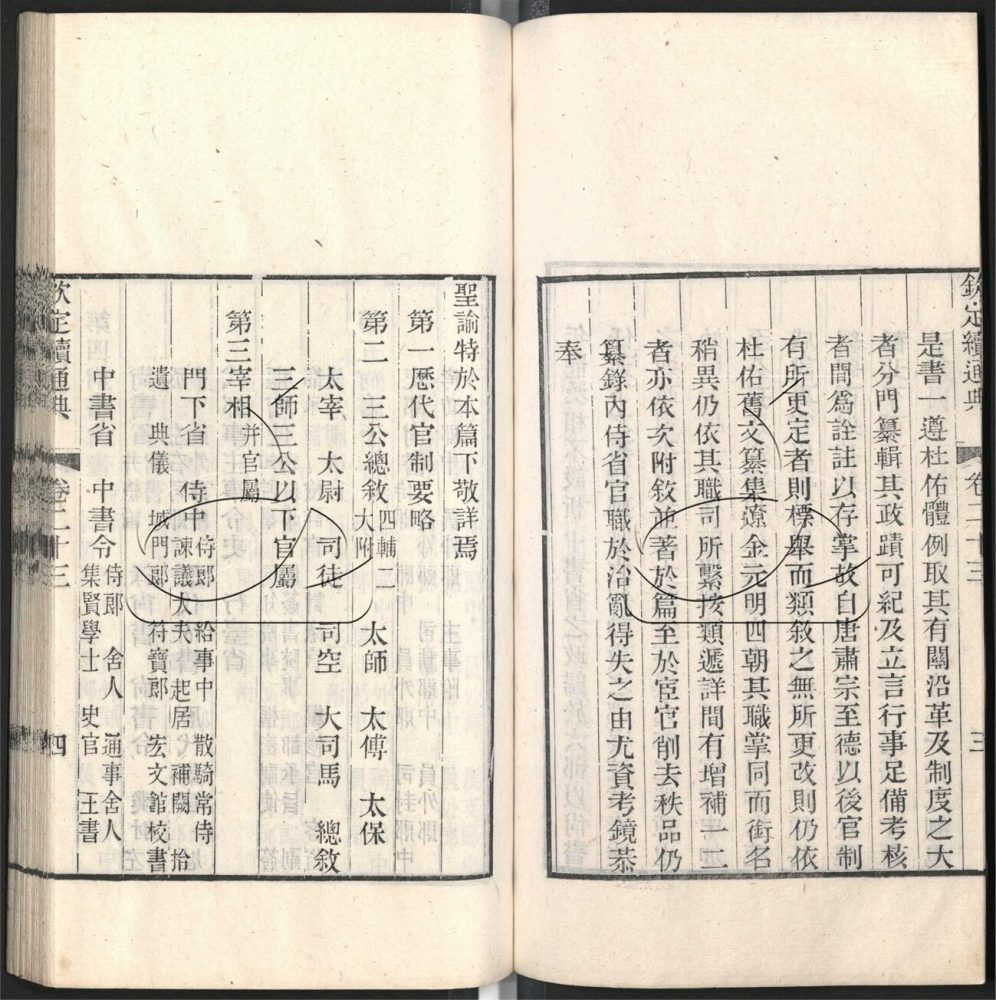 欽定續通典 卷二十三 三
是書一遵杜佑體例取其有關沿革及制度之大
者分門纂輯其政蹟可紀及立言行事足備考核
者間爲詮註以存掌故自唐肅宗至德以後官制
有所更定者則標舉而類敘之無所更改則仍依
杜佑舊文纂集遼金元明四朝其職掌同而銜名
稍異仍依其職司所繫按類遞詳間有增補一二
者亦依次附敘並著於篇至於宦官削去秩品仍
纂錄內侍省官職於治亂得失之由尤資考鏡恭
奉
聖諭特於本篇下敬詳焉
第一歷代官制要略
第二 三公總敘 四輔二大附 太師 太傅 太保
太宰 太尉 司徒 司空 大司馬 總敘
三師三公以下官屬
第三宰相 并官屬
門下省 侍中 侍郎 給事中 散騎常侍
諫議大夫 起居 補闕 拾
遺 典儀 城門郎 符寶郎 宏文館校書
中書省 中書令 侍郎 舍人 通事舍人
集賢學士 史官 主書
欽定續通典 卷二十三 四